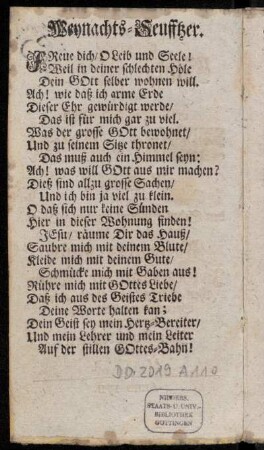 Weynachts-Seufftzer.
FReue dich/ O Leib und Seele!
Weil in deiner schlechten Höle
Dein GOtt selber wohnen will.
Ach! wie daß ich arme Erde
Dieser Ehr gewürdigt werde/
Das ist für mich gar zu viel.
Was der grosse GOtt bewohnet/
Und zu seinem Sitze thronet/
Das muß auch ein Himmel seyn;
Ach! was will GOtt aus mir machen?
Dieß sind allzu grosse Sachen/
Und ich bin ja viel zu klein.
O daß sich nur keine Sünden
Hier in dieser Wohnung finden!
JEsu/ räume Dir das Hauß/
Saubre mich mit deinem Blute/
Kleide mich mit deinem Gute/
Schmücke mich mit Gaben aus!
Rühre mich mit GOttes Liebe/
Daß ich aus des Geistes Triebe
Deine Worte halten kan;
Dein Geist sey mein Hertz-Bereiter/
Und mein Lehrer und mein Leiter
Auf der stillen GOttes-Bahn!
DD 2019 A 110
NIEDERS.
STAATS- U. UNIV.-
BIBLIOTHEK
GÖTTINGEN